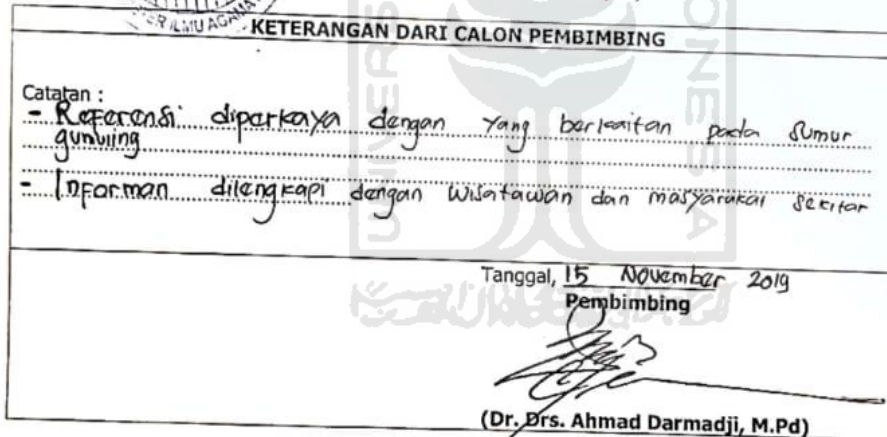 KETERANGAN DARI CALON PEMBIMBING
Catatan :
- Referensi diperkaya dengan yang berkaitan pada Sumur
- Informan dilengkapi dengan wisatawan dan masyarakat sekitar
Tanggal, 15 November 2019
Pembimbing
(Dr. Drs. Ahmad Darmadji, M.Pd)